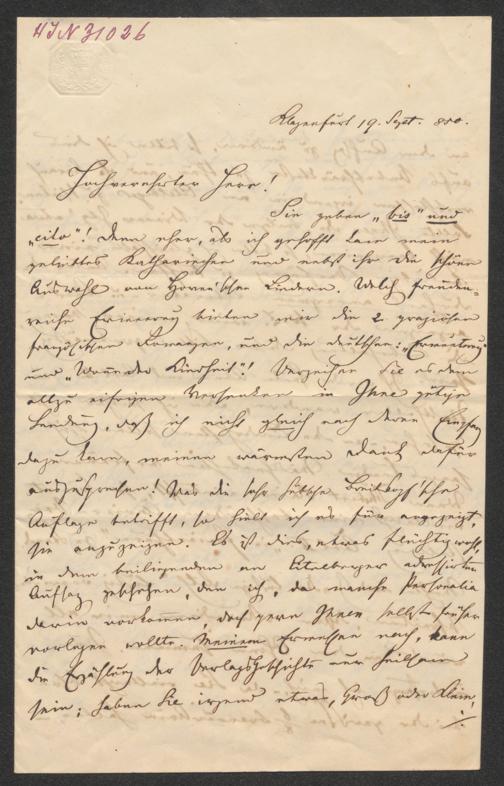 HIN 31026
Klagenfurt 19. Sept. 850.
Hochverehrter Herr!
Sie geben „bis" und
„cito"! Denn eher, als ich gehofft kam mein
geliebtes Katharinchen und nebst ihr die schöne
Auswahl von Hoven'schen Liedern. Welch freuden-
reiche Erinnerung bieten mir die 2 graziösen
französischen Romanzen, und die deutschen: „Erwartung"
und „Wonne der Kindheit"! Verzeihen Sie es dem
allzu eifrigen Versenken in Ihre gütige
Sendung, daß ich nicht gleich nach deren Empfang
dazu kam, meinen wärmsten Dank dafür
auszusprechen! Was die sehr hübsche Breitkopf'sche
Auflage betrifft, so hielt ich es für angezeigt,
sie anzuzeigen. Es ist dies, etwas flüchtig wohl,
in dem beiliegenden an Eitelberger adressirten
Aufsatz geschehen, den ich, da manche Personalia
darin vorkommen, doch gern Ihnen selbst früher
vorlegen wollte. Meinem Ermessen nach, kann
die Erzählung der Verlagsgeschichte nur heilsam
sein; haben Sie irgend etwas, Groß oder Klein,